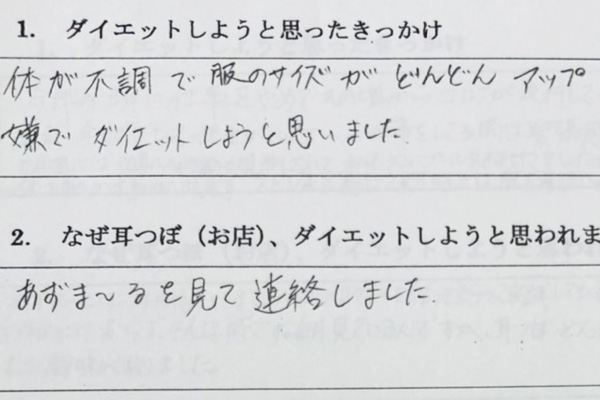 1. ダイエットしようと思ったきっかけ
体が不調で服のサイズがどんどんアップ
嫌でダイエットしようと思いました。
2. なぜ耳つぼ（お店）、ダイエットしようと思われま
あずま～るを見て連絡しました。